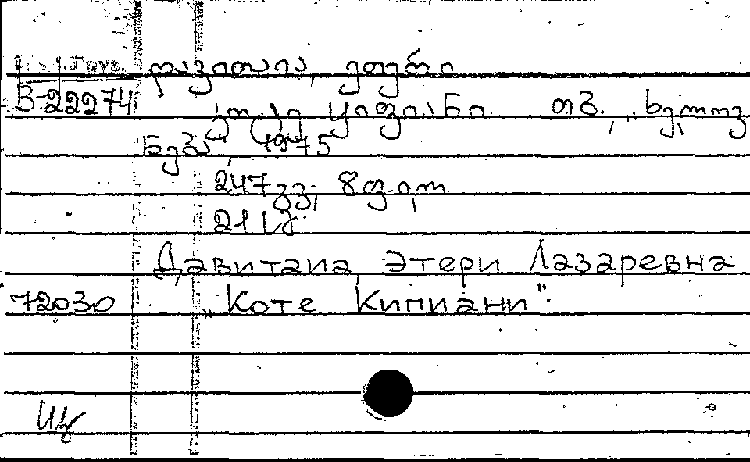 დავითაია, ეთერი
В-22274
კოტე ყიფიანი თბ., ხელოვ
ნება", 1975
247 გვ; 8 ფ.ილ
21 სმ
Давитаиа, Этери Лазаревна
72030 "Коте Кипиани".